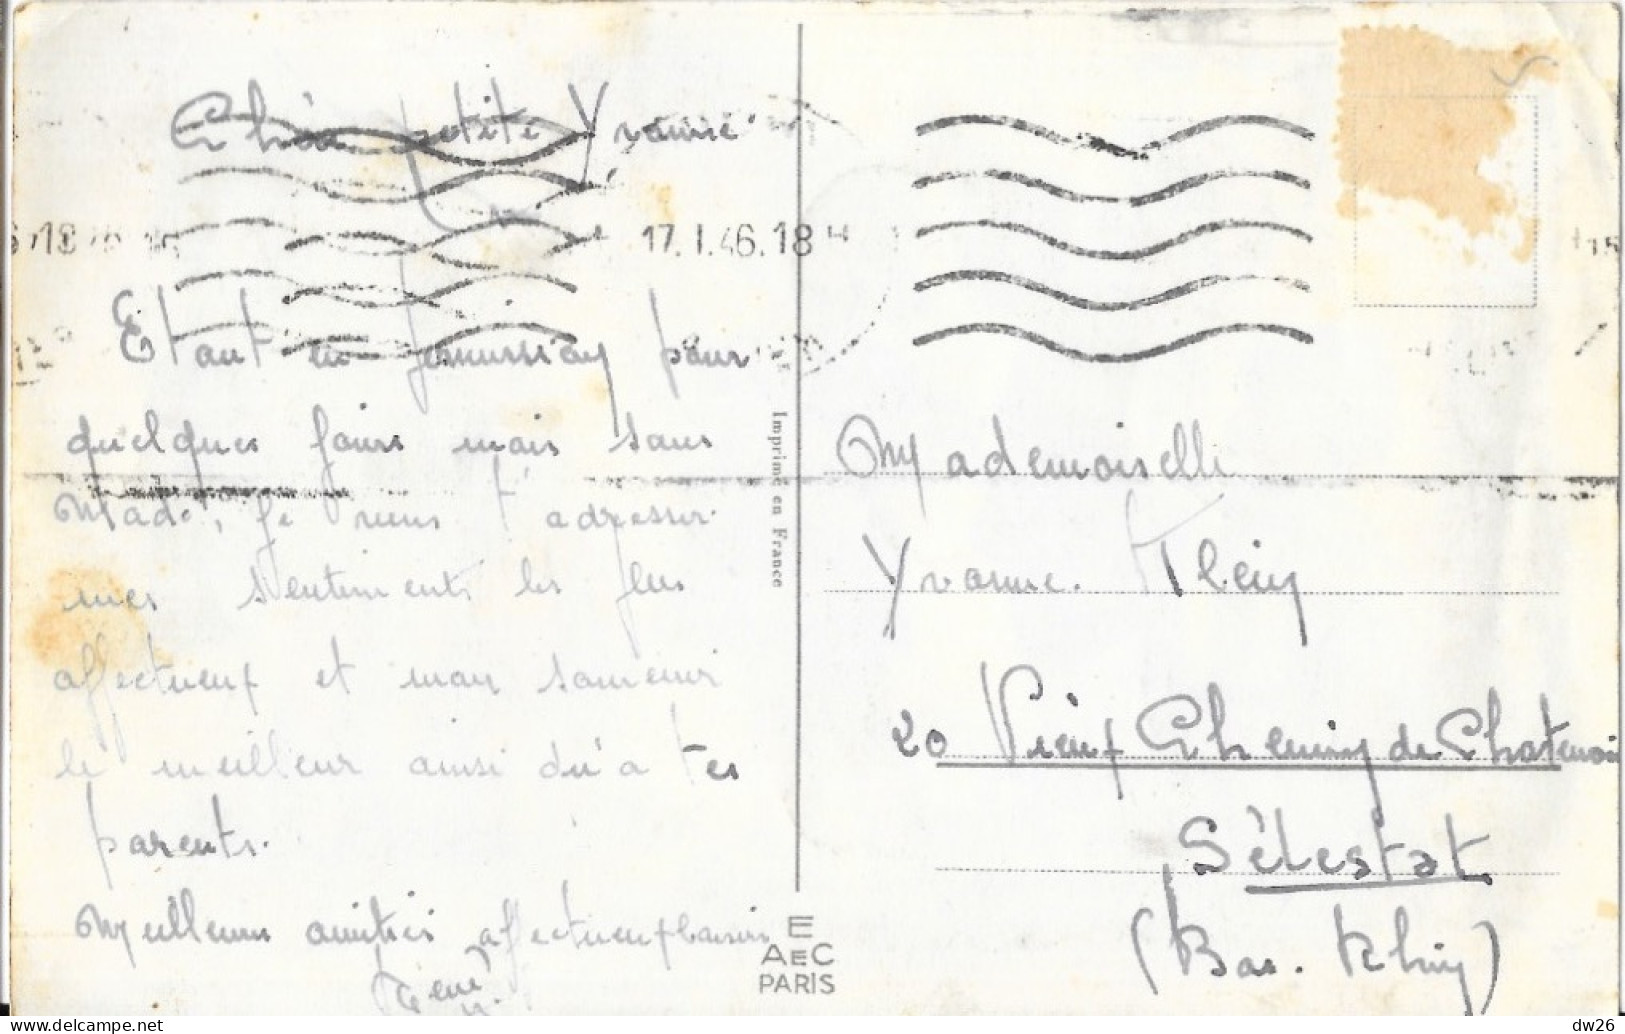 Chère petite Yvonne
17. 1. 46. 18 H
Etant en permission pour
quelques jours mais sans
Mado, je viens t'adresser
mes sentiments les plus
affectueux et mon souvenir
le meilleur ainsi qu'à tes
parents.
Meilleures amitiés affectueux baisers
René
Imprimé en France
E
AEC
PARIS
Mademoiselle
Yvonne Klein
20 Vieux Chemin de Chatenois
Sélestat
(Bas. Rhin)
dw26